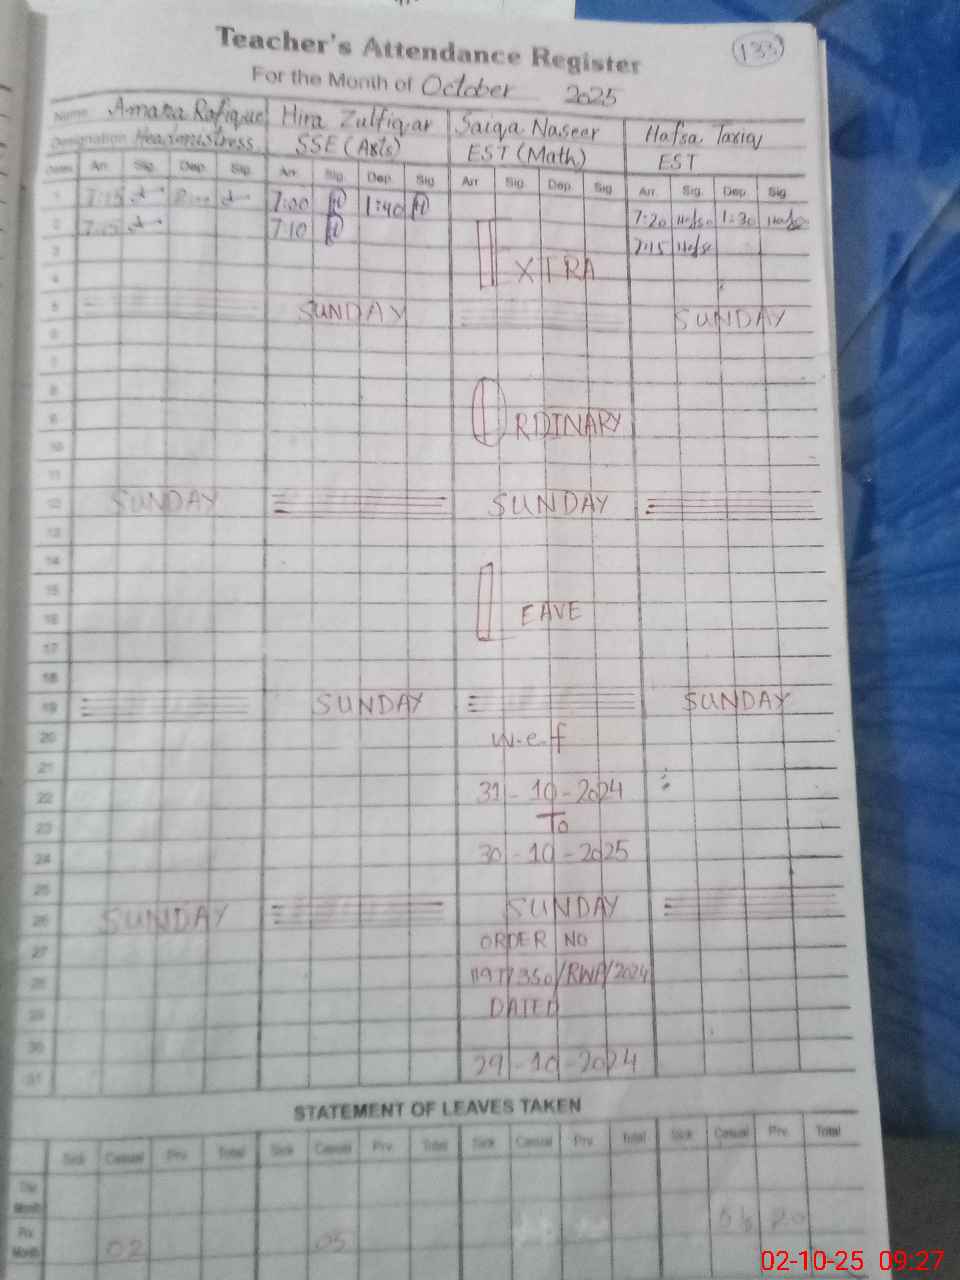 133
Teacher's Attendance Register
For the Month of October 2025
Name Amara Rafique Hira Zulfiqar Saiqa Naseer Hafsa Tariq
Designation Headmistress SSE (Arts) EST (Math) EST
Dates Arr. Sig. Dep. Sig. Arr. Sig. Dep. Sig. Arr. Sig. Dep. Sig. Arr. Sig. Dep. Sig.
1 7:15 7:00 1:40 7:20 Hafsa 1:30 Hafsa
2 7:15 7:10 7:15 Hafsa
3 EXTRA
4
5 SUNDAY SUNDAY
6
7
8
9 ORDINARY
10
11
12 SUNDAY SUNDAY
13
14
15
16 LEAVE
17
18
19 SUNDAY SUNDAY
20 w.e.f
21
22 31-10-2024
23 To
24 30-10-2025
25
26 SUNDAY SUNDAY
27 ORDER NO
28 /350/RWP/2024
29 DATED
30
31 29-10-2024
STATEMENT OF LEAVES TAKEN
Sick Casual Prv. Total Sick Casual Prv. Total Sick Casual Prv. Total Sick Casual Prv. Total
The Month
Prv. Month 02 05
02-10-25 09:27